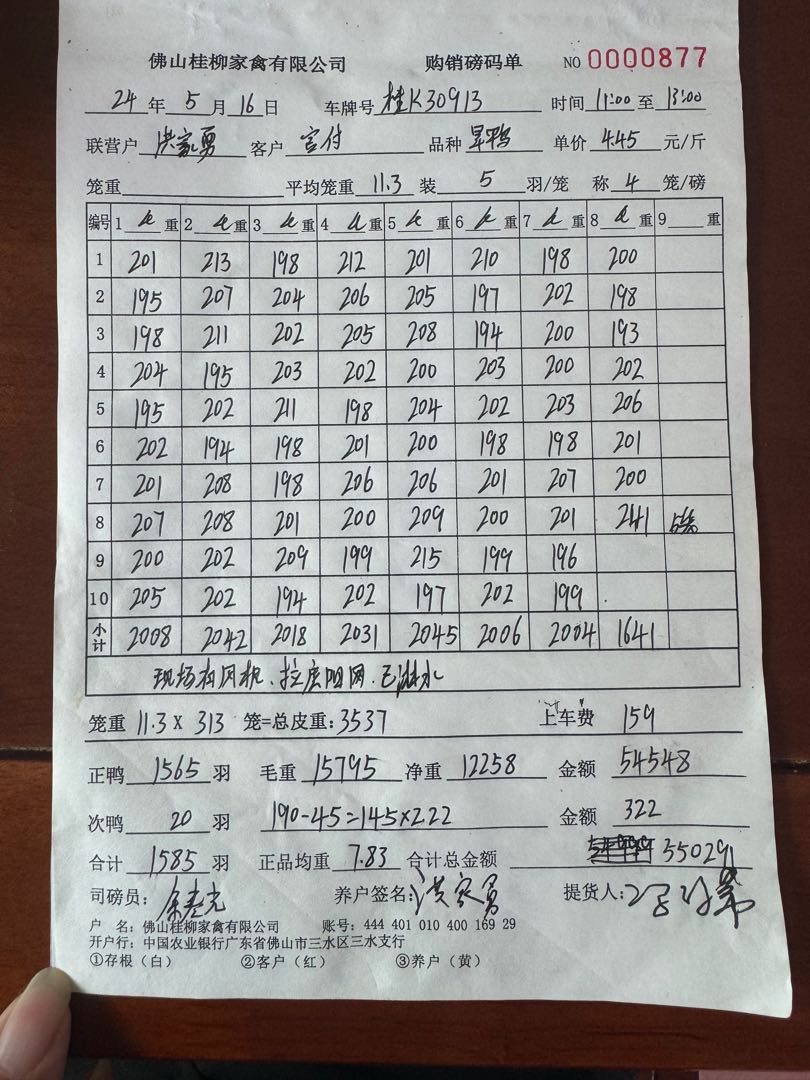 佛山桂柳家禽有限公司 购销磅码单 NO 0000877
24 年 5 月 16 日 车牌号 桂K30913 时间 11:00 至 13:00
联营户 洪家勇 客户 品种 旱鸭 单价 4.45 元/斤
笼重 平均笼重 11.3 装 5 羽/笼 称 4 笼/磅
编号 1 重 2 重 3 重 4 重 5 重 6 重 7 重 8 重 9 重
1 201 213 198 212 201 210 198 200
2 195 207 204 206 205 197 202 198
3 198 211 202 205 208 194 200 193
4 204 195 203 202 200 203 200 202
5 195 202 211 198 204 202 203 206
6 202 194 198 201 200 198 198 201
7 201 208 198 206 206 201 207 200
8 207 208 201 200 209 200 201 241
9 200 202 209 199 215 199 196
10 205 202 194 202 197 202 199
小计 2008 2042 2018 2031 2045 2006 2004 1641
现场有风机、拉底阻网、已淋水
笼重 11.3 X 313 笼=总皮重: 3537 上车费 159
正鸭 1565 羽 毛重 15795 净重 12258 金额 54548
次鸭 20 羽 190-45=145×2.22 金额 322
合计 1585 羽 正品均重 7.83 合计总金额 55029
司磅员: 养户签名: 洪家勇 提货人:
户 名: 佛山桂柳家禽有限公司 账号: 444 401 010 400 169 29
开户行: 中国农业银行广东省佛山市三水区三水支行
①存根（白） ②客户（红） ③养户（黄）